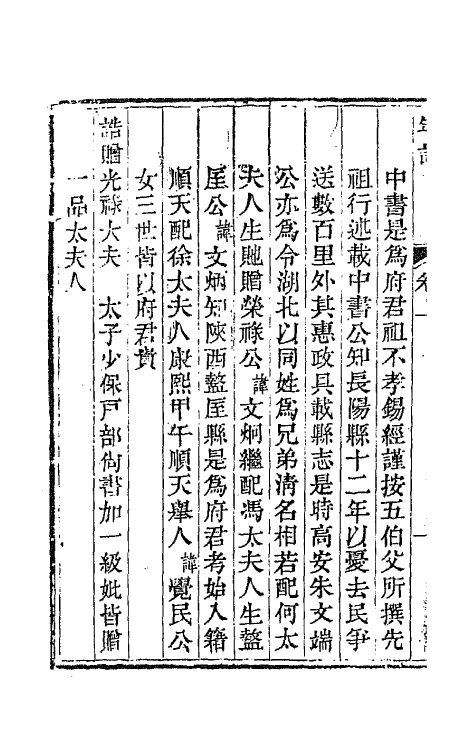 中書是爲府君祖不孝錫經謹按五伯父所撰先
祖行述載中書公知長陽縣十二年以憂去民爭
送數百里外其惠政具載縣志是時高安朱文端
公亦爲令湖北以同姓爲兄弟淸名相若配何太
夫人生貤贈榮祿公諱文炯繼配馮太夫人生盩
厔公諱文炳知陝西盩厔縣是爲府君考始入籍
順天配徐太夫人康熙甲午順天舉人諱覺民公
女三世皆以府君貴
誥贈光祿大夫　太子少保戸部尙書加一級妣皆贈
一品太夫人